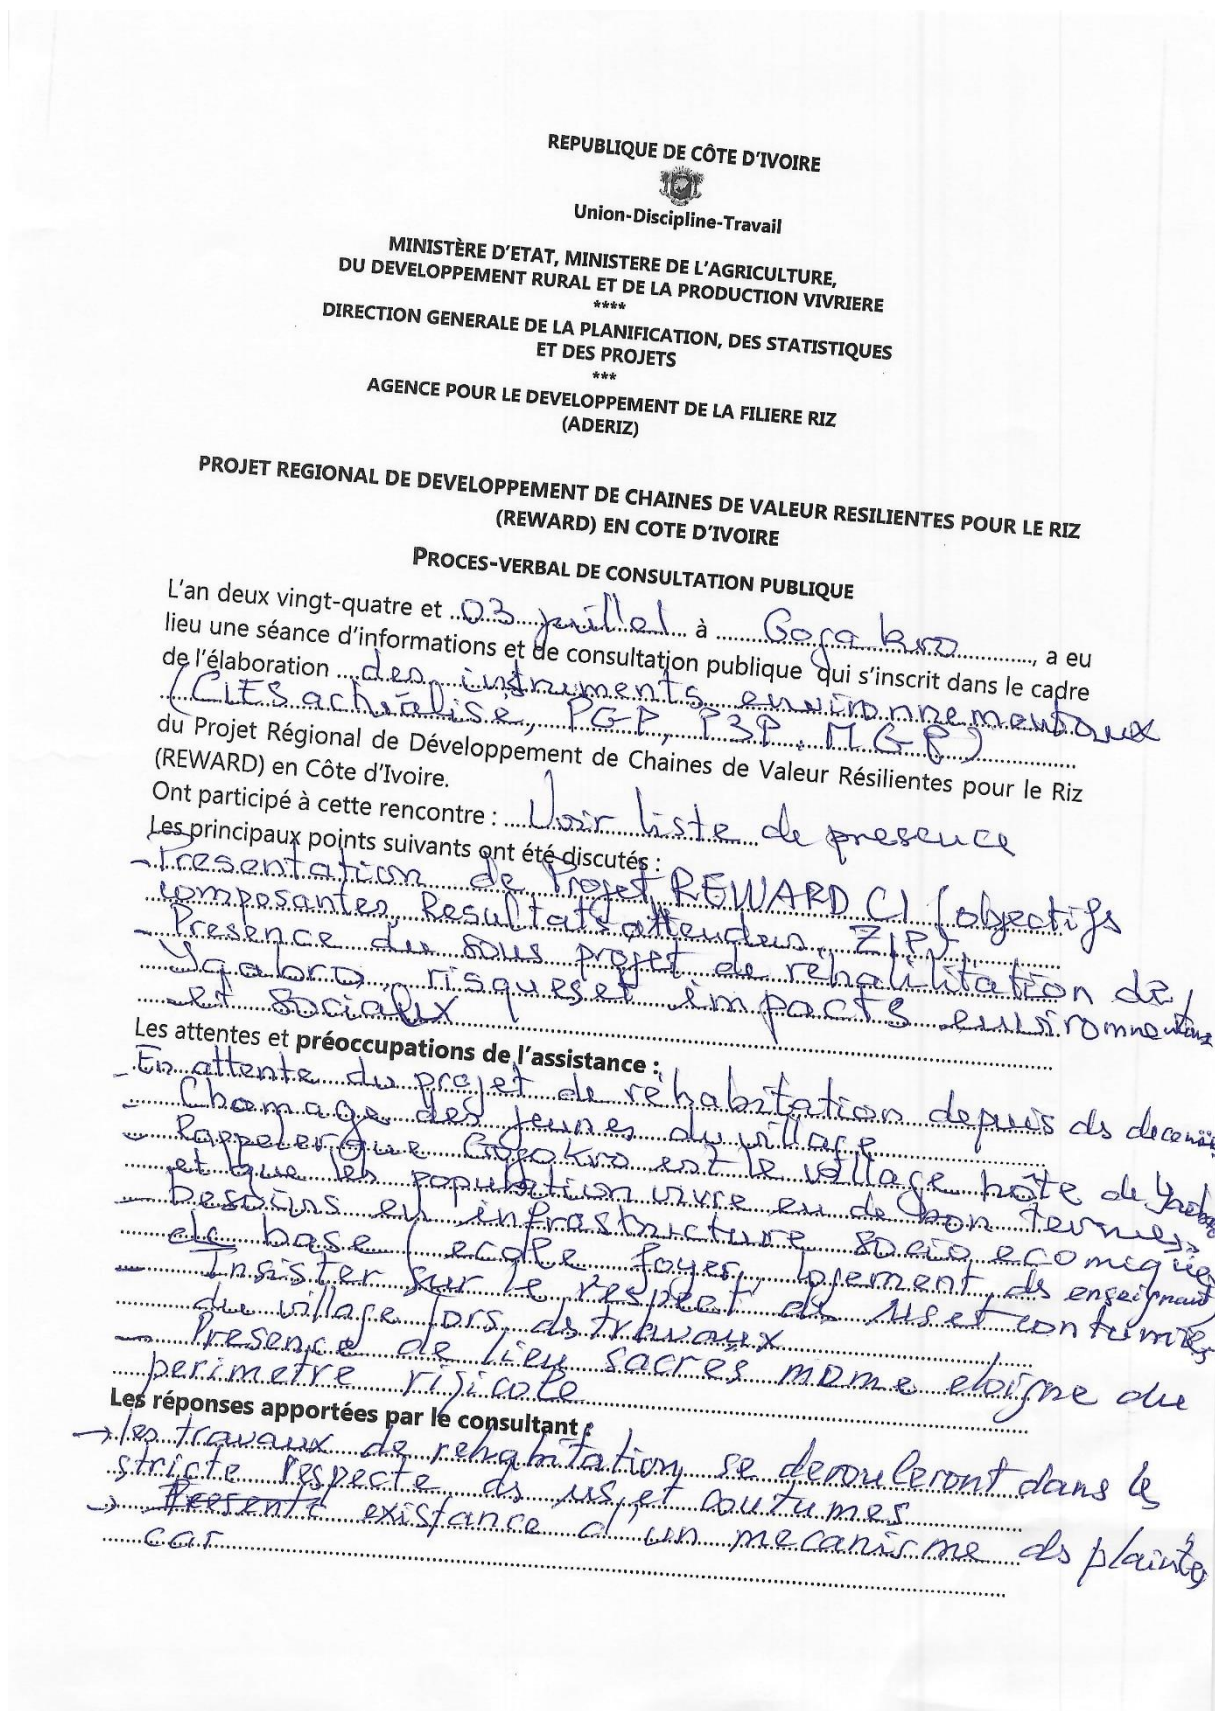 REPUBLIQUE DE CÔTE D'IVOIRE
Union-Discipline-Travail
MINISTÈRE D'ETAT, MINISTERE DE L'AGRICULTURE,
DU DEVELOPPEMENT RURAL ET DE LA PRODUCTION VIVRIERE
****
DIRECTION GENERALE DE LA PLANIFICATION, DES STATISTIQUES
ET DES PROJETS
***
AGENCE POUR LE DEVELOPPEMENT DE LA FILIERE RIZ
(ADERIZ)
PROJET REGIONAL DE DEVELOPPEMENT DE CHAINES DE VALEUR RESILIENTES POUR LE RIZ
(REWARD) EN COTE D'IVOIRE
PROCES-VERBAL DE CONSULTATION PUBLIQUE
L'an deux vingt-quatre et 03 juillet à Gogokro, a eu
lieu une séance d'informations et de consultation publique qui s'inscrit dans le cadre
de l'élaboration des instruments environnementaux
(CIES actualisé, PGP, P3P, MGP)
du Projet Régional de Développement de Chaines de Valeur Résilientes pour le Riz
(REWARD) en Côte d'Ivoire.
Ont participé à cette rencontre : Voir liste de presence
Les principaux points suivants ont été discutés :
- Presentation de Projet REWARD CI (objectifs
composantes, Resultats attendus, ZIP)
- Presence du sous projet de réhalilitation de
risques et impacts
et sociaux
Les attentes et préoccupations de l'assistance :
- En attente du projet de réhabitation depuis ds
- Chomage des jeunes du village
- Rappeler que Gogokro est le village hôte de
et que les population vivre en de bon termes
- besoins en infrastructure socio ecomiques
de base (ecole foyer, logement, ds enseignant
- Insister sur le respect ds us et coutumes
du village lors ds travaux
- Presence de lieu sacrés mome eloigne du
perimetre rizicole
Les réponses apportées par le consultant :
→ les travaux de rehabitation se derouleront dans le
stricte respecte ds us et coutumes
→ existance d'un mecanisme ds plaintes
car